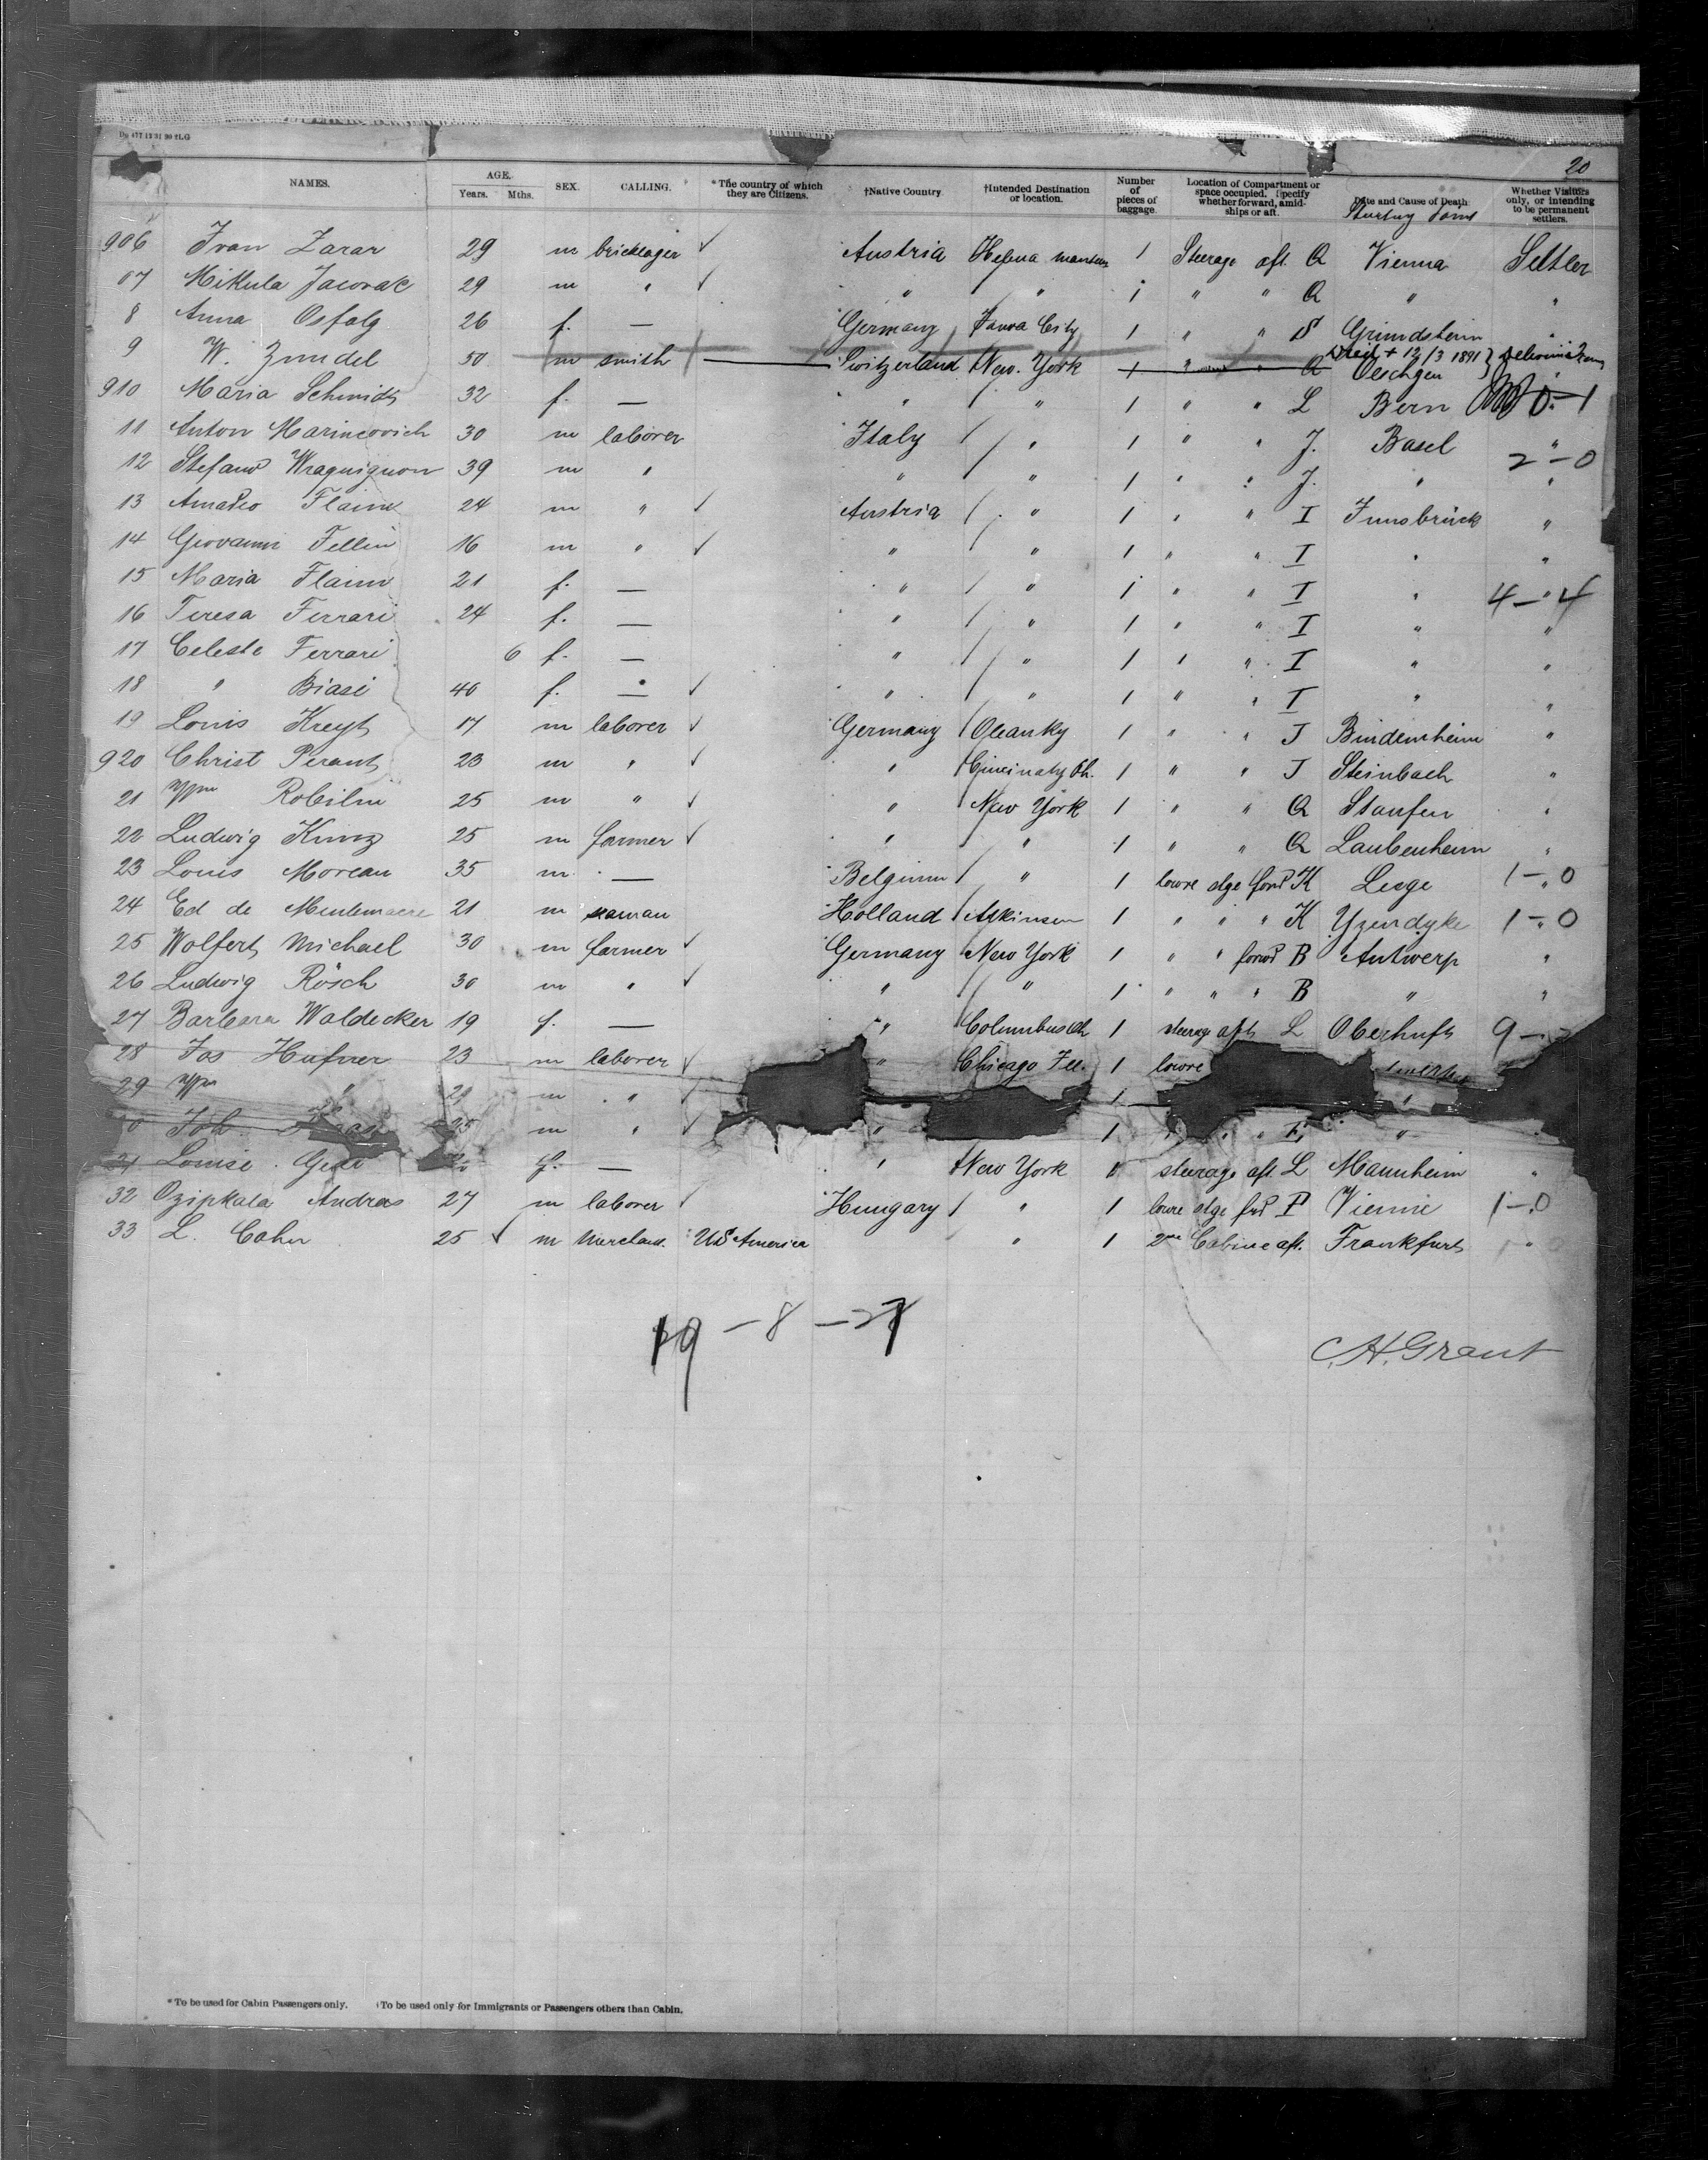 20
NAMES. AGE. Years. Mths. SEX. CALLING. *The country of which they are Citizens. †Native Country †Intended Destination or location. Number of pieces of baggage. Location of Compartment or space occupied. Specify whether forward, amidships or aft. Date and Cause of Death Whether Visitors only, or intending to be permanent settlers.
906 Ivan Zarar 29 m bricklager ✓ Austria Helena 1 Steerage aft. Q Vienna Settler
07 Mikula 29 m " ✓ " " 1 " " Q " "
8 Anna Osfolg 26 f. — Germany Iowa City 1 " " S Grimdsheim "
9 W. Zundel 50 m smith Switzerland New. York 1 " " Q Oeschgen died + 12/3 1891
910 Maria Schmidt 32 f. — " " 1 " " L Bern 0-1
11 Anton Marincovich 30 m laborer Italy " 1 " " J. Basel "
12 Stefano 39 m " " " 1 " " J. " " 2-0
13 Amadeo Flaim 24 m " ✓ Austria " 1 " " I Innsbrück "
14 Giovanni Fellin 16 m " ✓ " " 1 " " I " "
15 Maria Flaim 21 f. — " " 1 " " I " " 4-4
16 Teresa Ferrari 24 f. — " " 1 " " I " "
17 Celeste Ferrari 6 f. — " " 1 " " I " "
18 " Biasi 40 f. — ✓ " " 1 " " I " "
19 Louis Kreyt 17 m laborer ✓ Germany 1 " " J Bindemheim "
920 Christ Perant 23 m " ✓ " Cincinaty Oh. 1 " " J Steinbach "
21 Robilin 25 m " ✓ " New York 1 " " Q Staufen "
22 Ludwig Kunz 25 m farmer ✓ " " 1 " " Q Laubenheim "
23 Louis Moreau 35 m. — Belgium " 1 lowre stge forwd K Leege 1-0
24 Ed de Meulemaere 21 m seaman Holland Atkinson 1 " " " K Yzendyke 1-0
25 Wolfert Michael 30 m farmer ✓ Germany New York 1 " " forwd B Antwerp "
26 Ludwig Rösch 30 m " ✓ " " 1 " " " B " "
27 Barbara Waldecker 19 f. — " Columbus Oh 1 steerage aft L Oberhuft 9-
28 Jos Hufner 23 m laborer ✓ " Chicago Ill. 1 lowre
29 " 29 m " ✓ 1 "
0 Joh. 25 m " ✓ " 1 " " " "
31 Louise f. — " New York " steerage aft. L Mannheim "
32 Ozipkala Andras 27 m laborer ✓ Hungary " 1 lowre stge fwd F Vienne 1-0
33 L. Cohn 25 ✓ m merchand. US America " 1 2me Cabine aft. Frankfurt "
19 - 8 - 27
C.H. Grant
*To be used for Cabin Passengers only. †To be used only for Immigrants or Passengers others than Cabin.